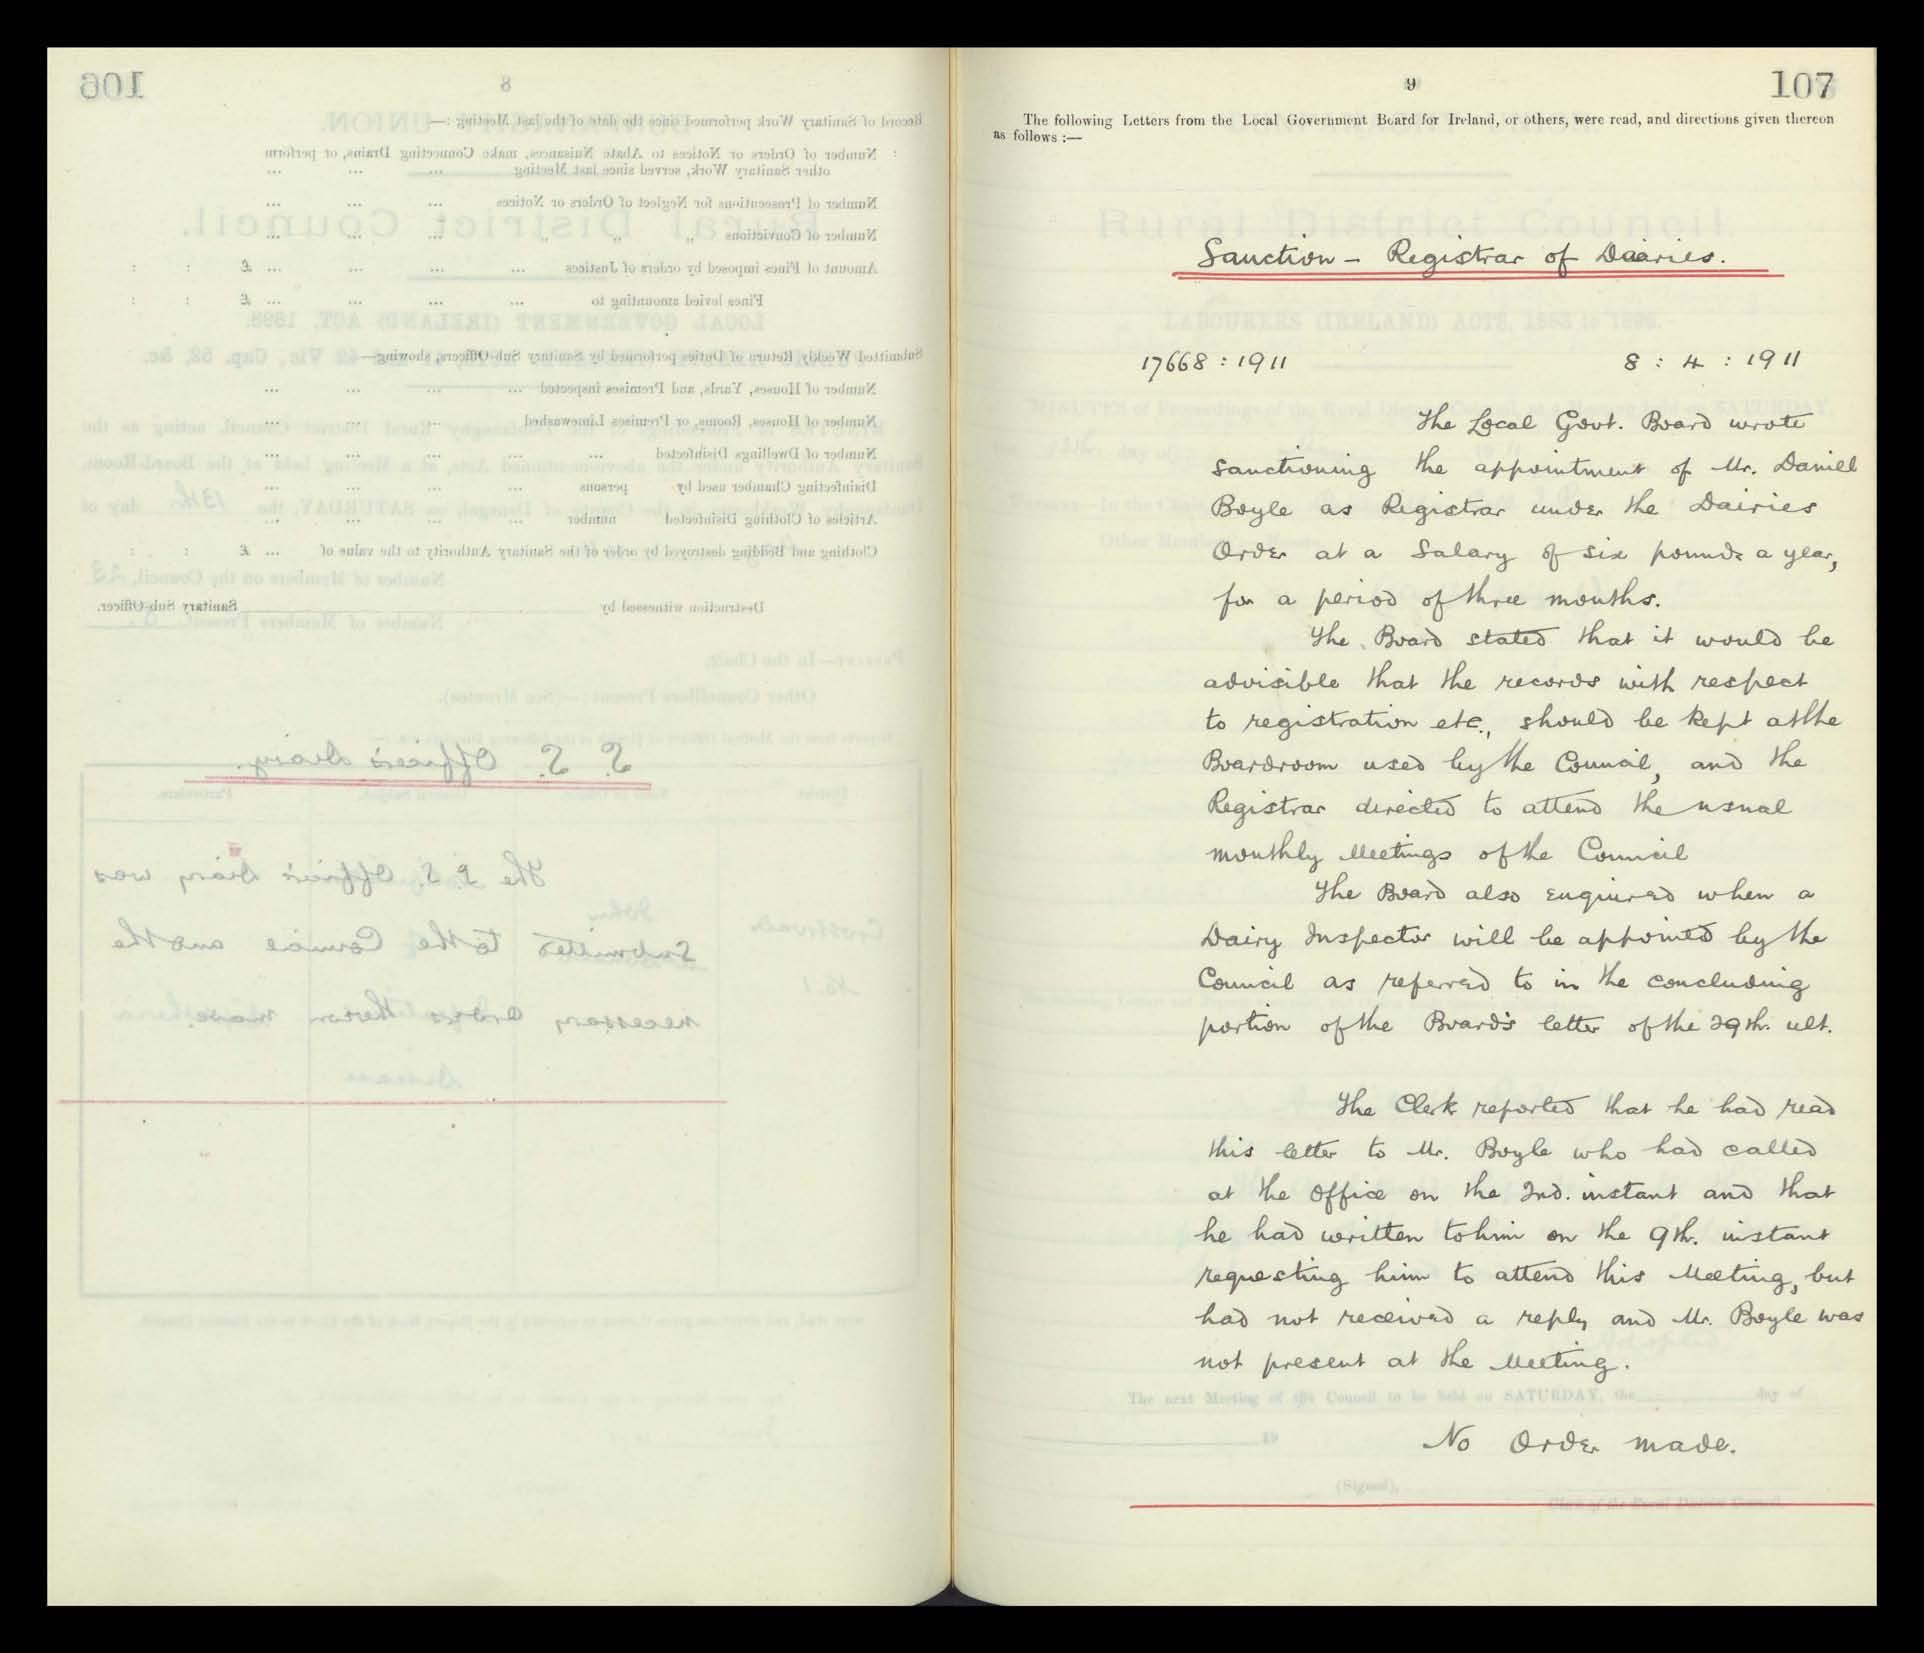 106
8
Record of Sanitary Work performed since the date of the last Meeting :—
Number of Orders or Notices to Abate Nuisances, make Connecting Drains, or perform
other Sanitary Work, served since last Meeting ... ... ...
Number of Prosecutions for Neglect of Orders or Notices ... ... ...
Number of Convictions „ „ „ ... ... ...
Amount of Fines imposed by orders of Justices ... ... ... ... £ : :
Fines levied amounting to ... ... ... ... £ : :
Submitted Weekly Return of Duties performed by Sanitary Sub-Officers, showing—
Number of Houses, Yards, and Premises inspected ... ... ... ...
Number of Houses, Rooms, or Premises Limewashed ... ... ...
Number of Dwellings Disinfected ... ... ... ...
Disinfecting Chamber used by persons ... ... ...
Articles of Clothing Disinfected number ... ... ...
Clothing and Bedding destroyed by order of the Sanitary Authority to the value of ... £ : :
Destruction witnessed by Sanitary Sub-Officer.
S. S. Officer's Diary.
The S. S. Officer's Diary was
submitted to the Council and the
necessary orders thereon made.
9
107
The following Letters from the Local Government Board for Ireland, or others, were read, and directions given thereon
as follows :—
Sanction – Registrar of Dairies.
17668 : 1911 8 : 4 : 1911
The Local Govt. Board wrote
sanctioning the appointment of Mr. Daniel
Boyle as Registrar under the Dairies
Order at a Salary of six pounds a year,
for a period of three months.
The Board stated that it would be
advisible that the records with respect
to registration etc., should be kept at the
Boardroom used by the Council, and the
Registrar directed to attend the usual
monthly Meetings of the Council
The Board also enquired when a
Dairy Inspector will be appointed by the
Council as referred to in the concluding
portion of the Board's letter of the 29th. ult.
The Clerk reported that he had read
this letter to Mr. Boyle who had called
at the Office on the 2nd. instant and that
he had written to him on the 9th. instant
requesting him to attend this Meeting, but
had not received a reply and Mr. Boyle was
not present at the Meeting.
No Order made.